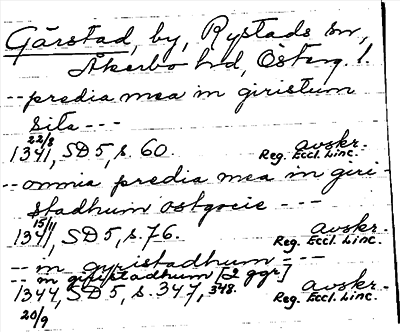 Gärstad, by, Rystads sn,
Åkerbo hd, Österg. l.
-- predia mea in giristum
sita ---
22/8
1341, SD 5, s. 60. avskr.
Reg. Eccl. Linc.
-- omnia predia mea in giri-
stadhum ostgocie ---
15/11
1341, SD 5, s. 76. avskr.
Reg. Eccl. Linc.
-- in gyristadhum ---
-- in giristadhum [2 ggr]
1344, SD 5, s. 347, 348. avskr.
Reg. Eccl. Linc.
20/9